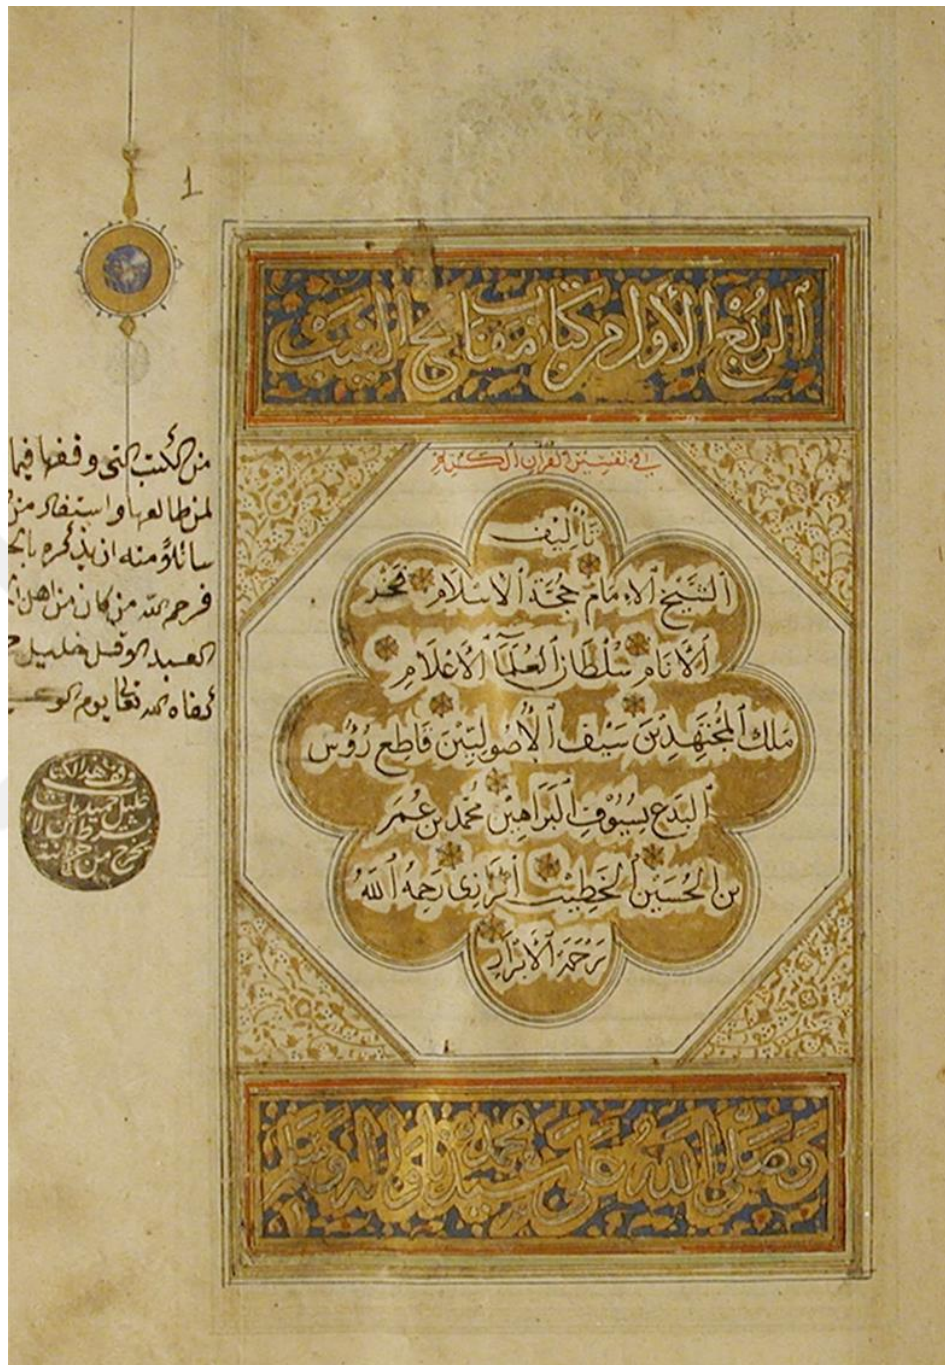 1
الربع الأول من كتاب مفاتيح الغيب
في تفسير القرآن الكريم
تأليف
الشيخ الإمام حجة الاسلام فخر
الأنام سلطان العلماء الأعلام
ملك المجتهدين سيف الأصوليين قاطع رؤوس
البدع بسيوف البراهين محمد بن عمر
بن الحسين الخطيب الرازي رحمه الله
برحمة الأبرار
وصلى الله على سيدنا محمد وآله وسلم
من الكتب التي وقفها فيما
لمن طالعها واستفاد من
سائلا منه ان يذكره بالخ
فرحم الله من كان من اهل
العبد الاقل خليل ح
كفاه الله تعالى يوم
وقف هذا
خليل حميد باشا
بشرط ان لا
يخرج من خزانته